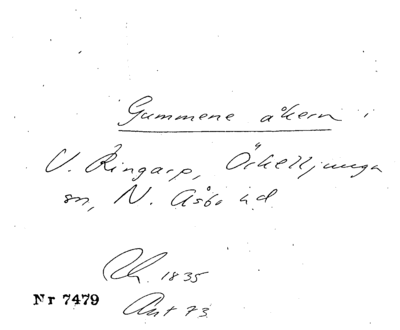 Gummene åkern i
V. Ringarp, Örkelljunga
sn, N. Åsbo hd
Ch. 1835
Nr 7479
Ant 73